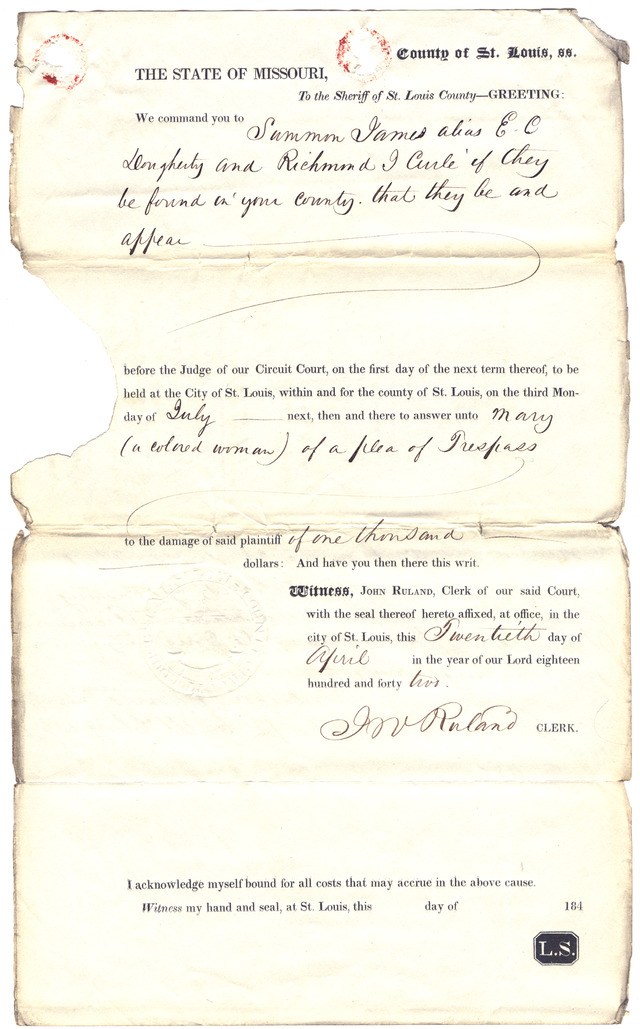 County of St. Louis, ss.
THE STATE OF MISSOURI,
To the Sheriff of St. Louis County—GREETING:
We command you to Summon James alias E. C
Dougherty and Richmond J Curle if they
be found in your county. that they be and
appear
before the Judge of our Circuit Court, on the first day of the next term thereof, to be
held at the City of St. Louis, within and for the county of St. Louis, on the third Mon-
day of July next, then and there to answer unto Mary
(a colored woman) of a plea of Trespass
to the damage of said plaintiff of one thousand
dollars: And have you then there this writ.
Witness, JOHN RULAND, Clerk of our said Court,
with the seal thereof hereto affixed, at office, in the
city of St. Louis, this Twentieth day of
April in the year of our Lord eighteen
hundred and forty two.
Jno Ruland CLERK.
I acknowledge myself bound for all costs that may accrue in the above cause.
Witness my hand and seal, at St. Louis, this day of 184
L.S.